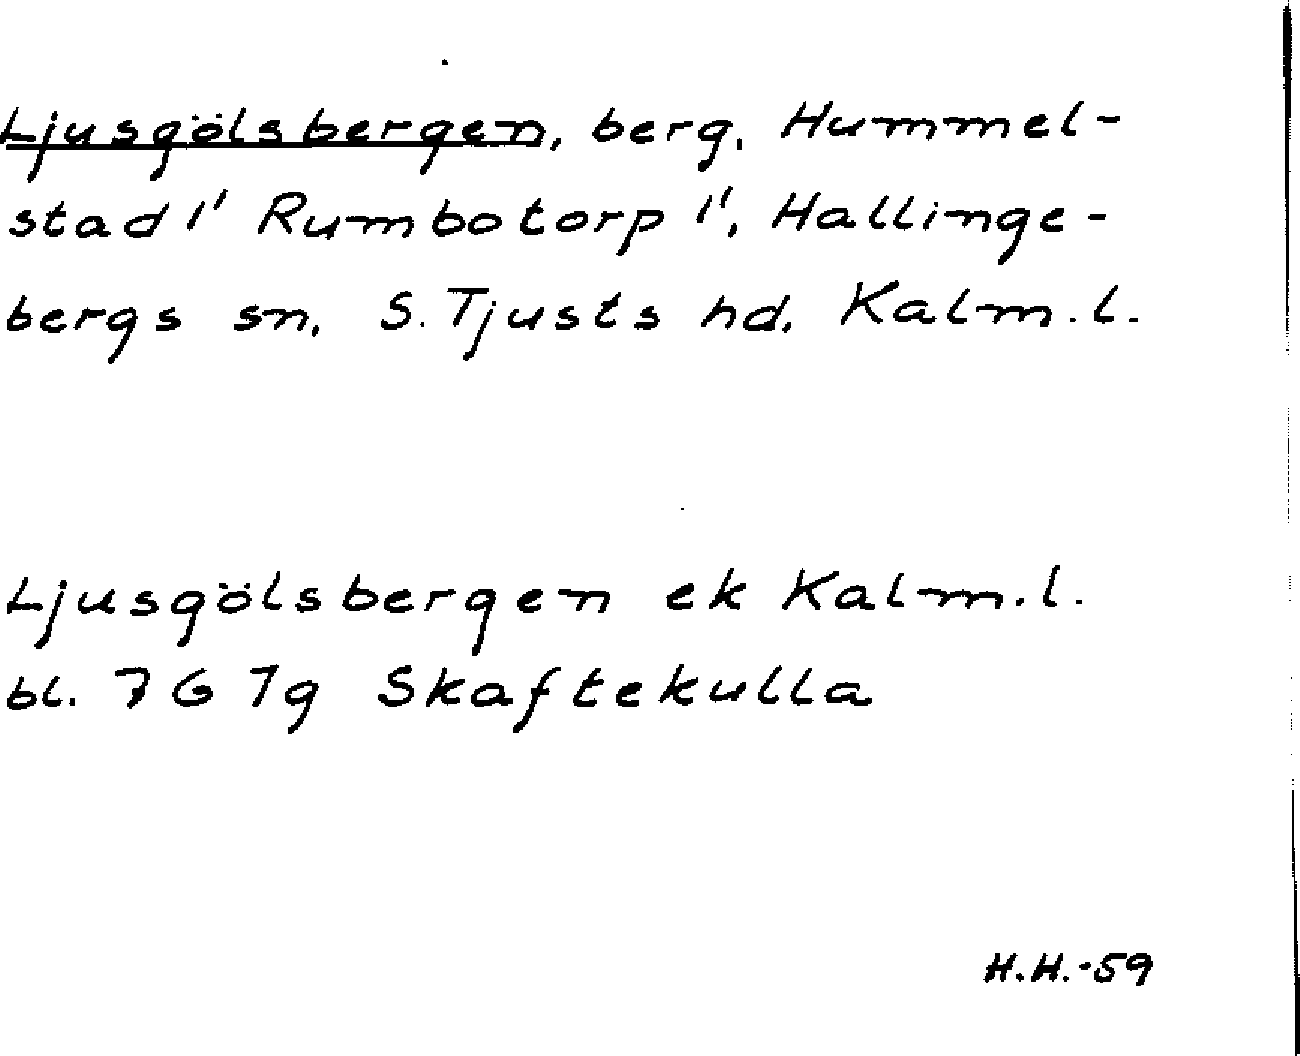 Ljusgölsbergen, berg, Hummel-
stad 1' Rumbotorp 1', Hallinge-
bergs sn, S. Tjusts hd, Kalm. l.
Ljusgölsbergen ek Kalm. l.
bl. 7G 7g Skaftekulla
H.H.-59